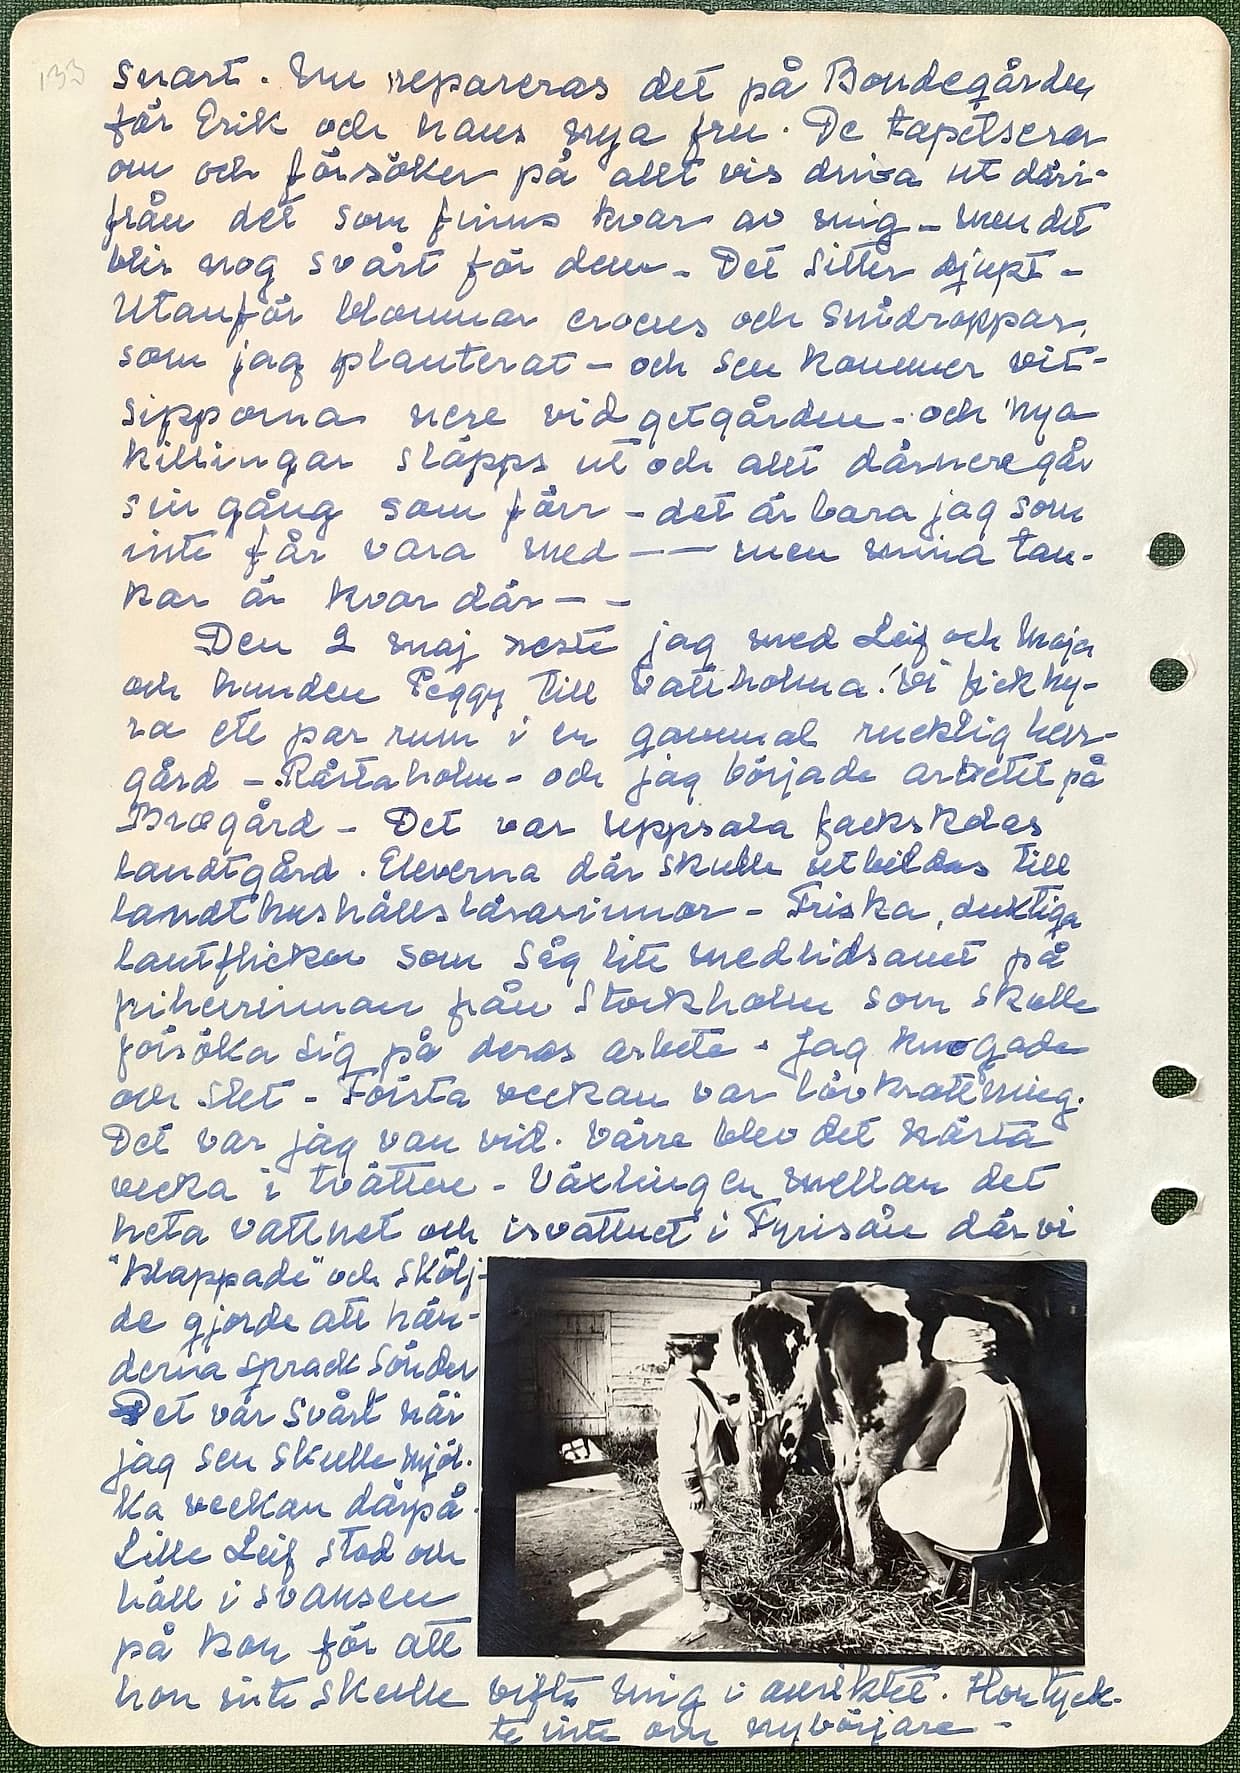 133
snart. Nu repareras det på Bondegården
för Erik och hans nya fru. De tapetserar
om och försöker på allt vis driva ut däri-
från det som finns kvar av mig – men det
blir nog svårt för dem – Det sitter djupt –
Utanför blommar crocus och snödroppar,
som jag planterat – och sen kommer vit-
sipporna nere vid getgården – och nya
killingar släpps ut och allt därnere går
sin gång som förr – det är bara jag som
inte får vara med — — men mina tan-
kar är kvar där – –
Den 2 maj reste jag med Leif och Maja
och hunden Peggy till Vattholma. Vi fick hy-
ra ett par rum i en gammal rucklig herr-
gård – Rästaholm – och jag började arbetet på
Brogård – Det var Uppsala fackskolas
landtgård. Eleverna där skulle utbildas till
landthushållslärarinnor – Friska, duktiga
lantflickor som såg lite medlidsamt på
friherrinnan från Stockholm som skulle
försöka sig på deras arbete. Jag knogade
och slet – Första veckan var lövkrattning.
Det var jag van vid. Värre blev det nästa
vecka i tvätten – Växlingen mellan det
heta vattnet och isvattnet i Fyrisån där vi
"klappade" och skölj-
de gjorde att hän-
derna sprack sönder
Det var svårt när
jag sen skulle mjöl-
ka veckan därpå.
Lille Leif stod och
höll i svansen
på kon för att
hon inte skulle vifta mig i ansiktet. Hon tyck-
te inte om nybörjare –